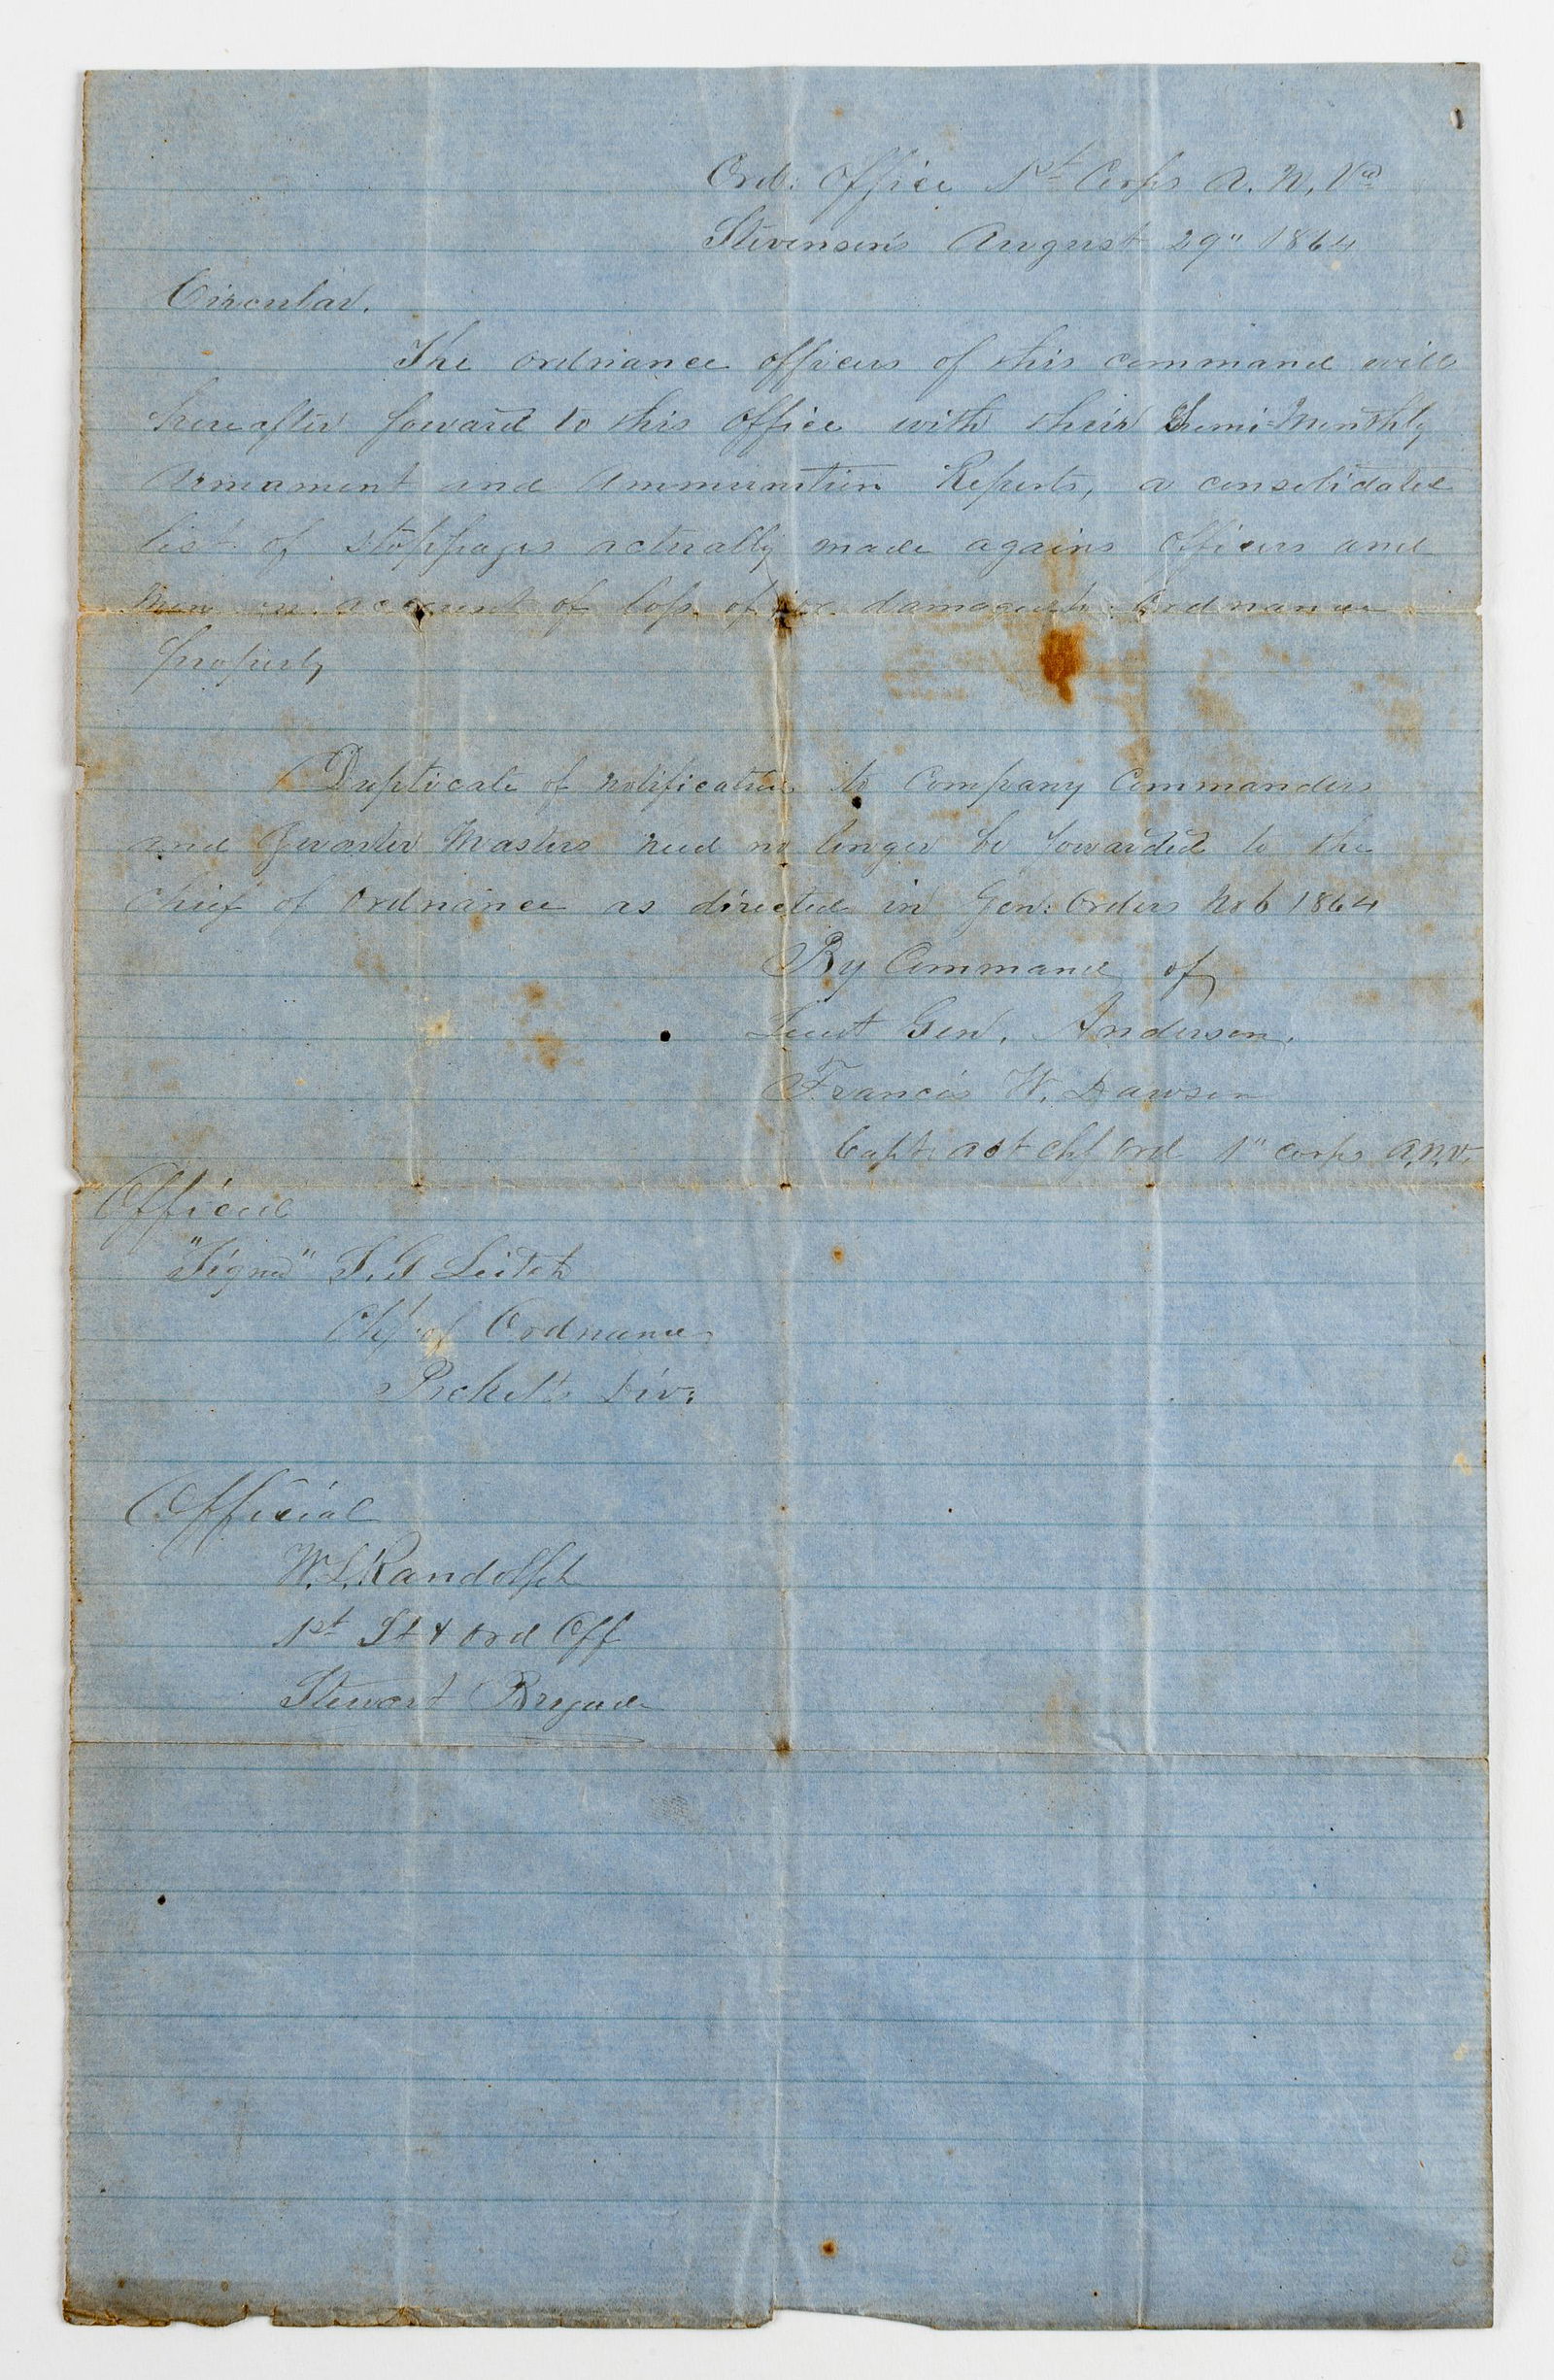 Ord: Office 1st Corps A. N. Va
Stevensons August 29" 1864
Circular.
The ordnance officers of this command will
hereafter foward to this office with their Semi-Monthly
Armament and Ammunition Reports, a consolidated
list of stoppages actually made agains officers and
men on account of loss of or damage to Ordnance
property
Duplicate of notification to Company Commanders
and Quarter Masters need no longer be fowarded to the
Chief of Ordnance as directed in Gen: Orders No 6 1864
By Command of
Lieut Gen. Anderson.
Francis W. Dawson
Capt. act chf ord 1" corps A.N.V.
Official
"Signed" S.G Leitch
Chf of Ordnance
Picketts Div:
Official
W. L. Randolph
1st Lt & Ord Off
Stewart Brigade